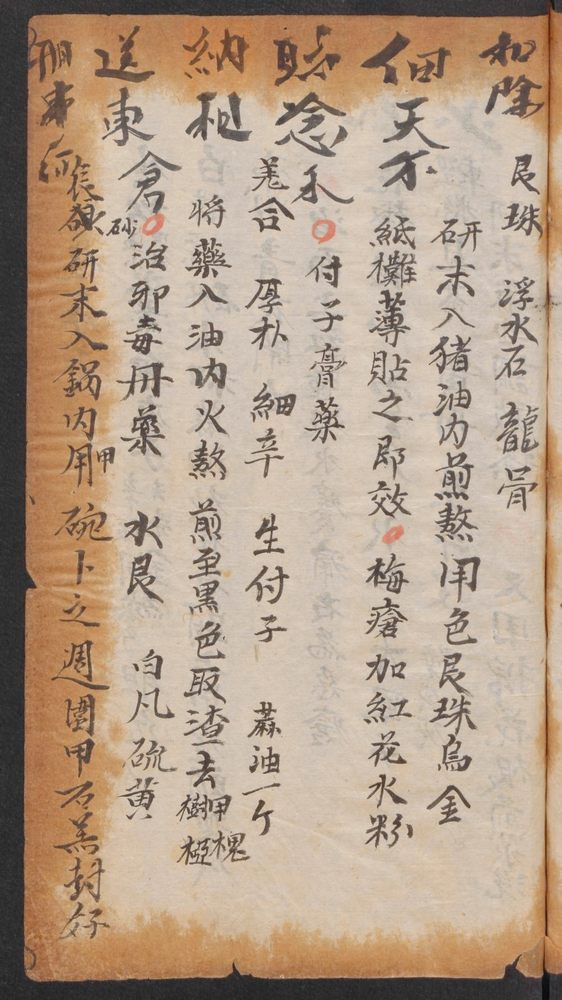 和除
艮珠 浮水石 龍骨
研末入猪油内煎熬用色艮珠烏金
佃天不
紙攤薄貼之即效 梅瘡加紅花水粉
念禾
付子膏藥
羌合 厚朴 細辛 生付子 蔴油一个
納租
将藥入油内火熬煎至黑色取渣去甲槐樹椏
送東倉
砂
治邪毒丹藥 水艮 白凡 硫黄
研末入鍋内用甲碗卜之週圍甲石羔封好